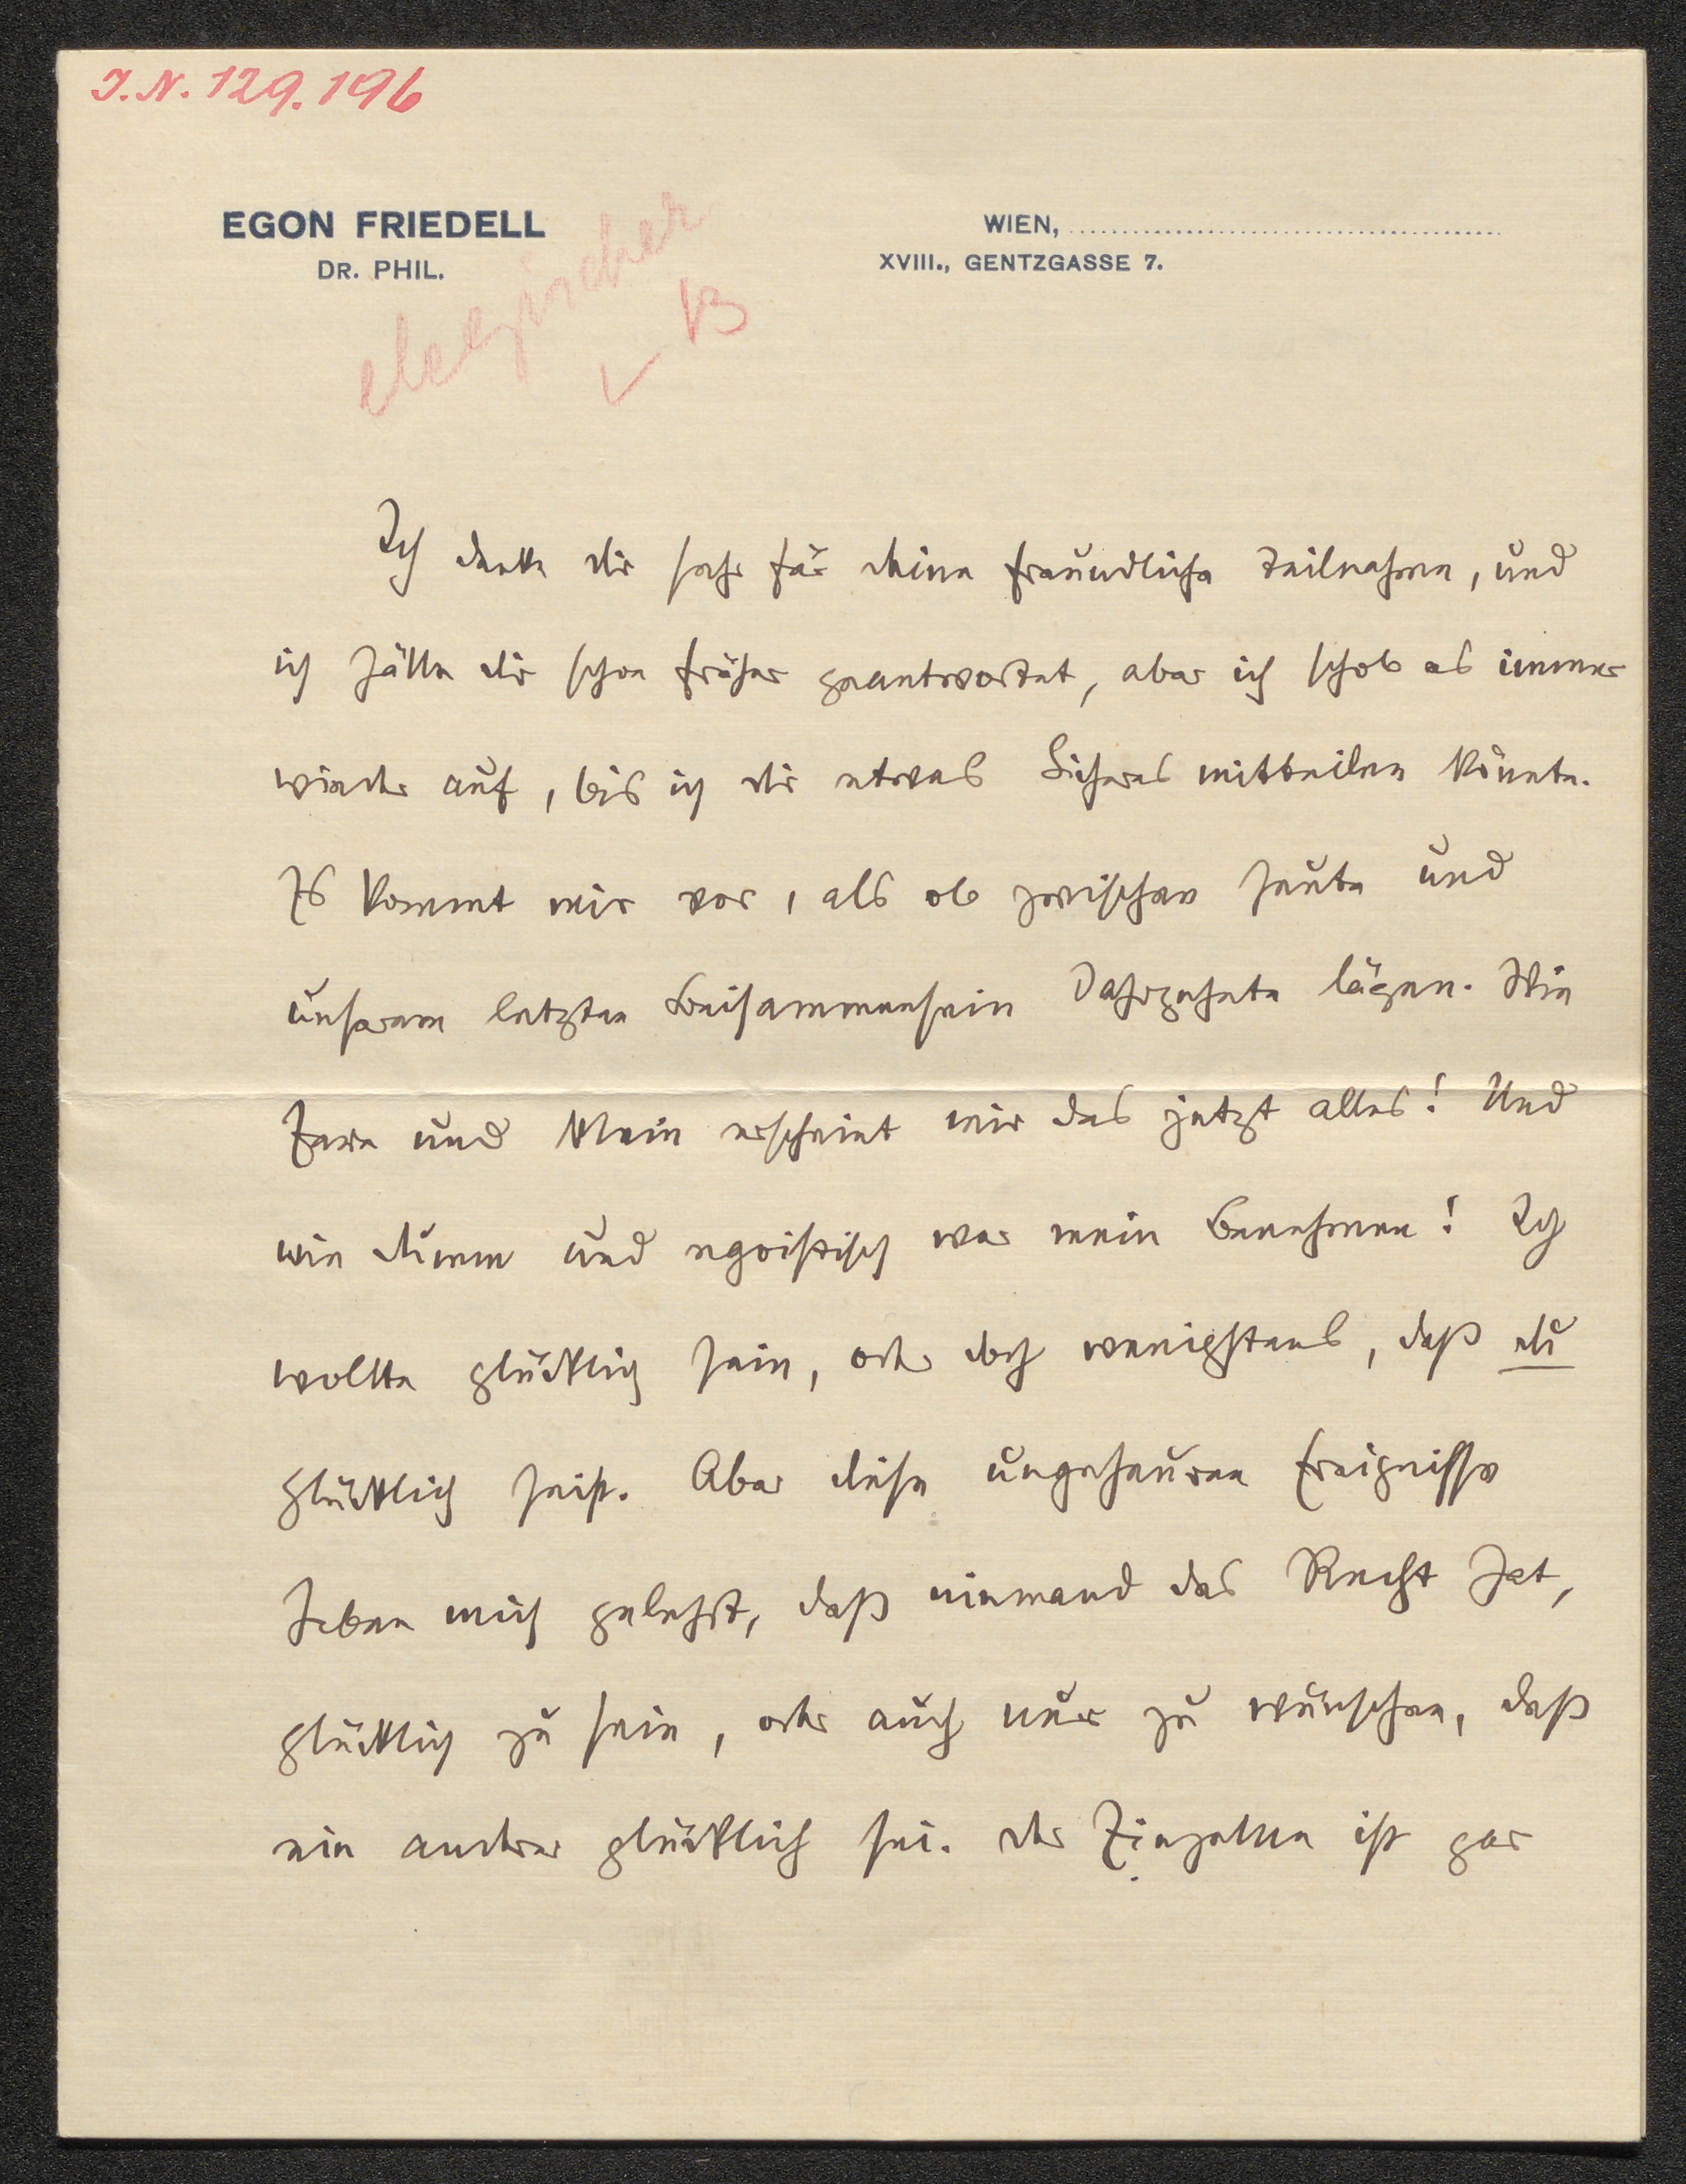 I.N. 129.196
EGON FRIEDELL
DR. PHIL.
WIEN,
XVIII., GENTZGASSE 7.
B
Ich danke dir sehr für deine freundliche Teilnahme, und
ich hätte dir schon früher geantwortet, aber ich schob es immer
wieder auf, bis ich dir etwas Sicheres mitteilen könnte.
Es kommt mir vor, als ob zwischen heute und
unserem letzten Beisammensein Jahrzehnte lägen. Wie
fern und klein erscheint mir das jetzt alles! Und
wie dumm und egoistisch war mein Benehmen! Ich
wollte glücklich sein, oder doch wenigstens, daß du
glücklich seist. Aber diese ungeheuren Ereignisse
haben mich gelehrt, daß niemand das Recht hat,
glücklich zu sein, oder auch nur zu wünschen, daß
ein andrer glücklich sei. Der Einzelne ist gar